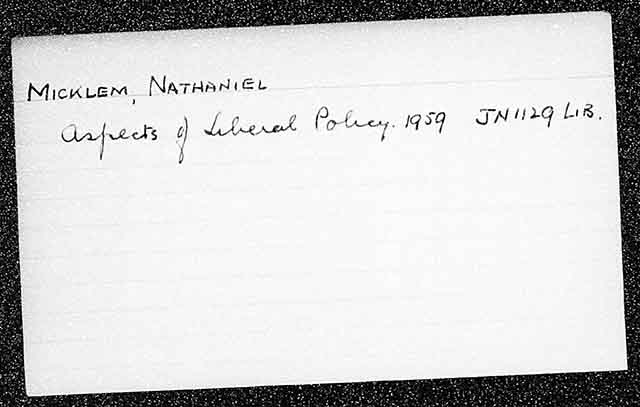 MICKLEM, NATHANIEL
Aspects of Liberal Policy. 1959 JN1129 LIB.